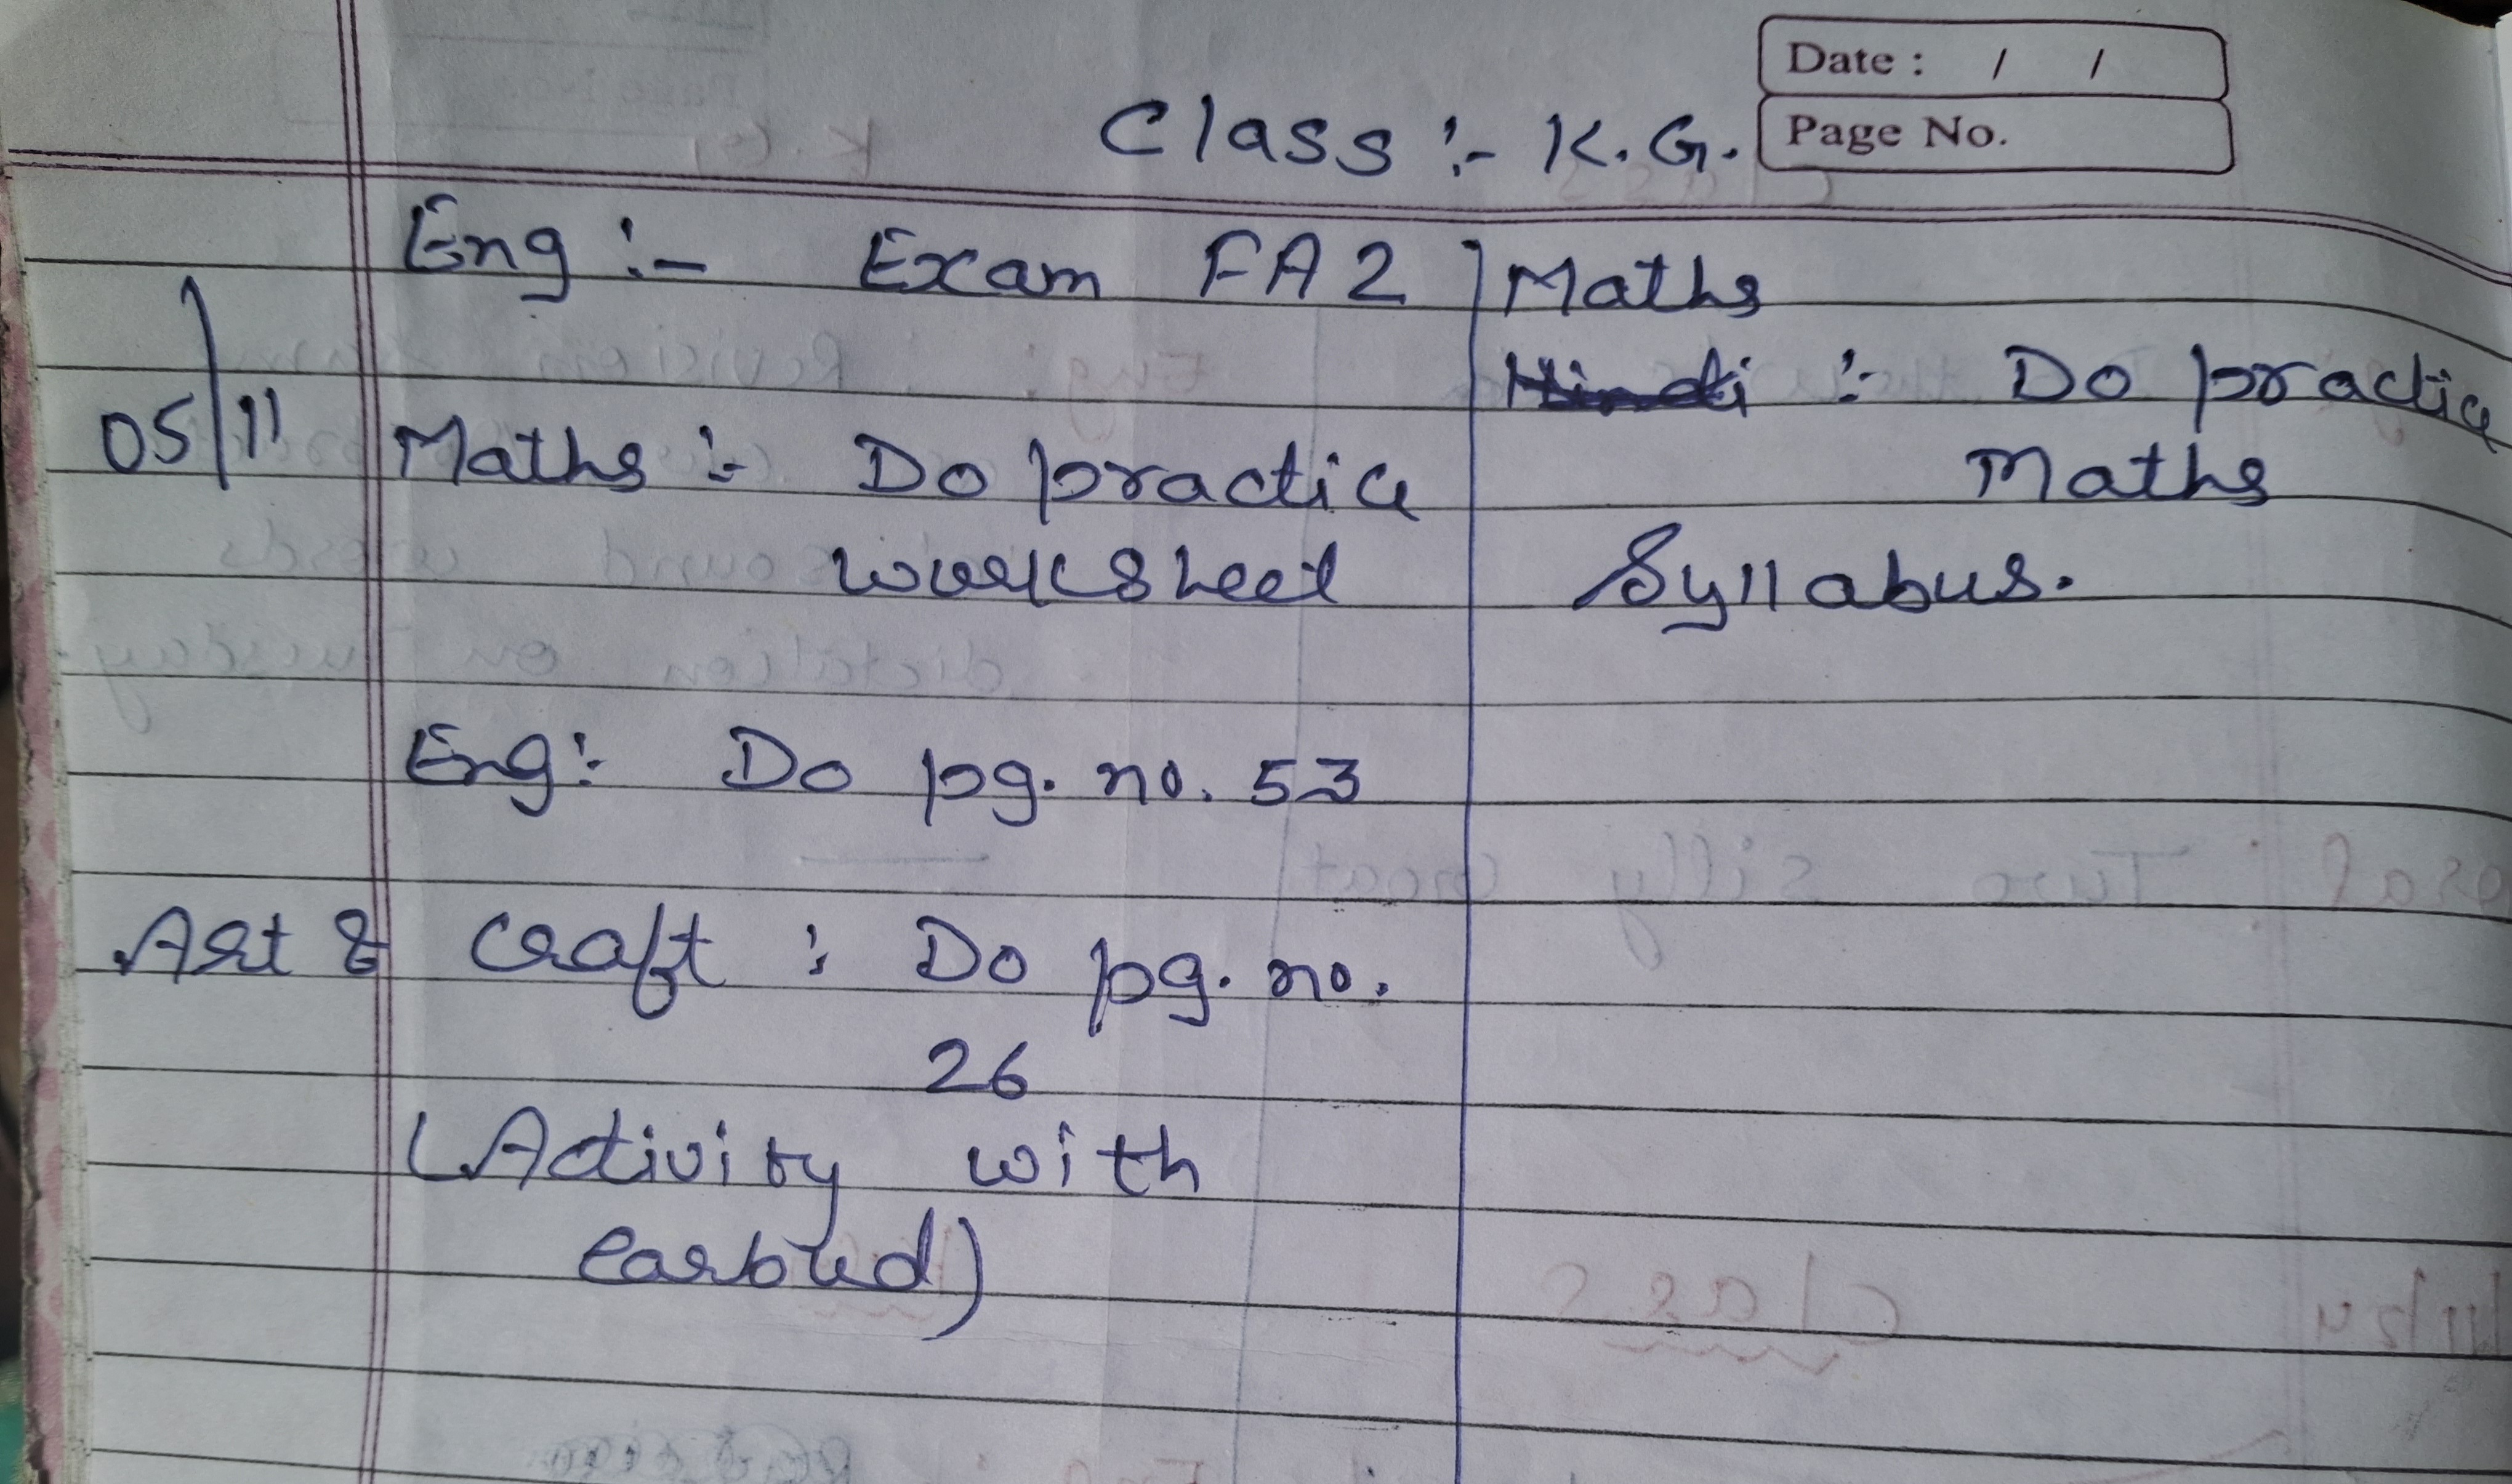 Date : / /
Page No.
Class :- K.G.
Eng :- Exam FA 2
05/11 Maths :- Do practice
worksheet
Eng :- Do pg. no. 53
Art & Craft : Do pg. no.
26
(Activity with
earbud)
Maths
Hindi :- Do practice
Maths
Syllabus.